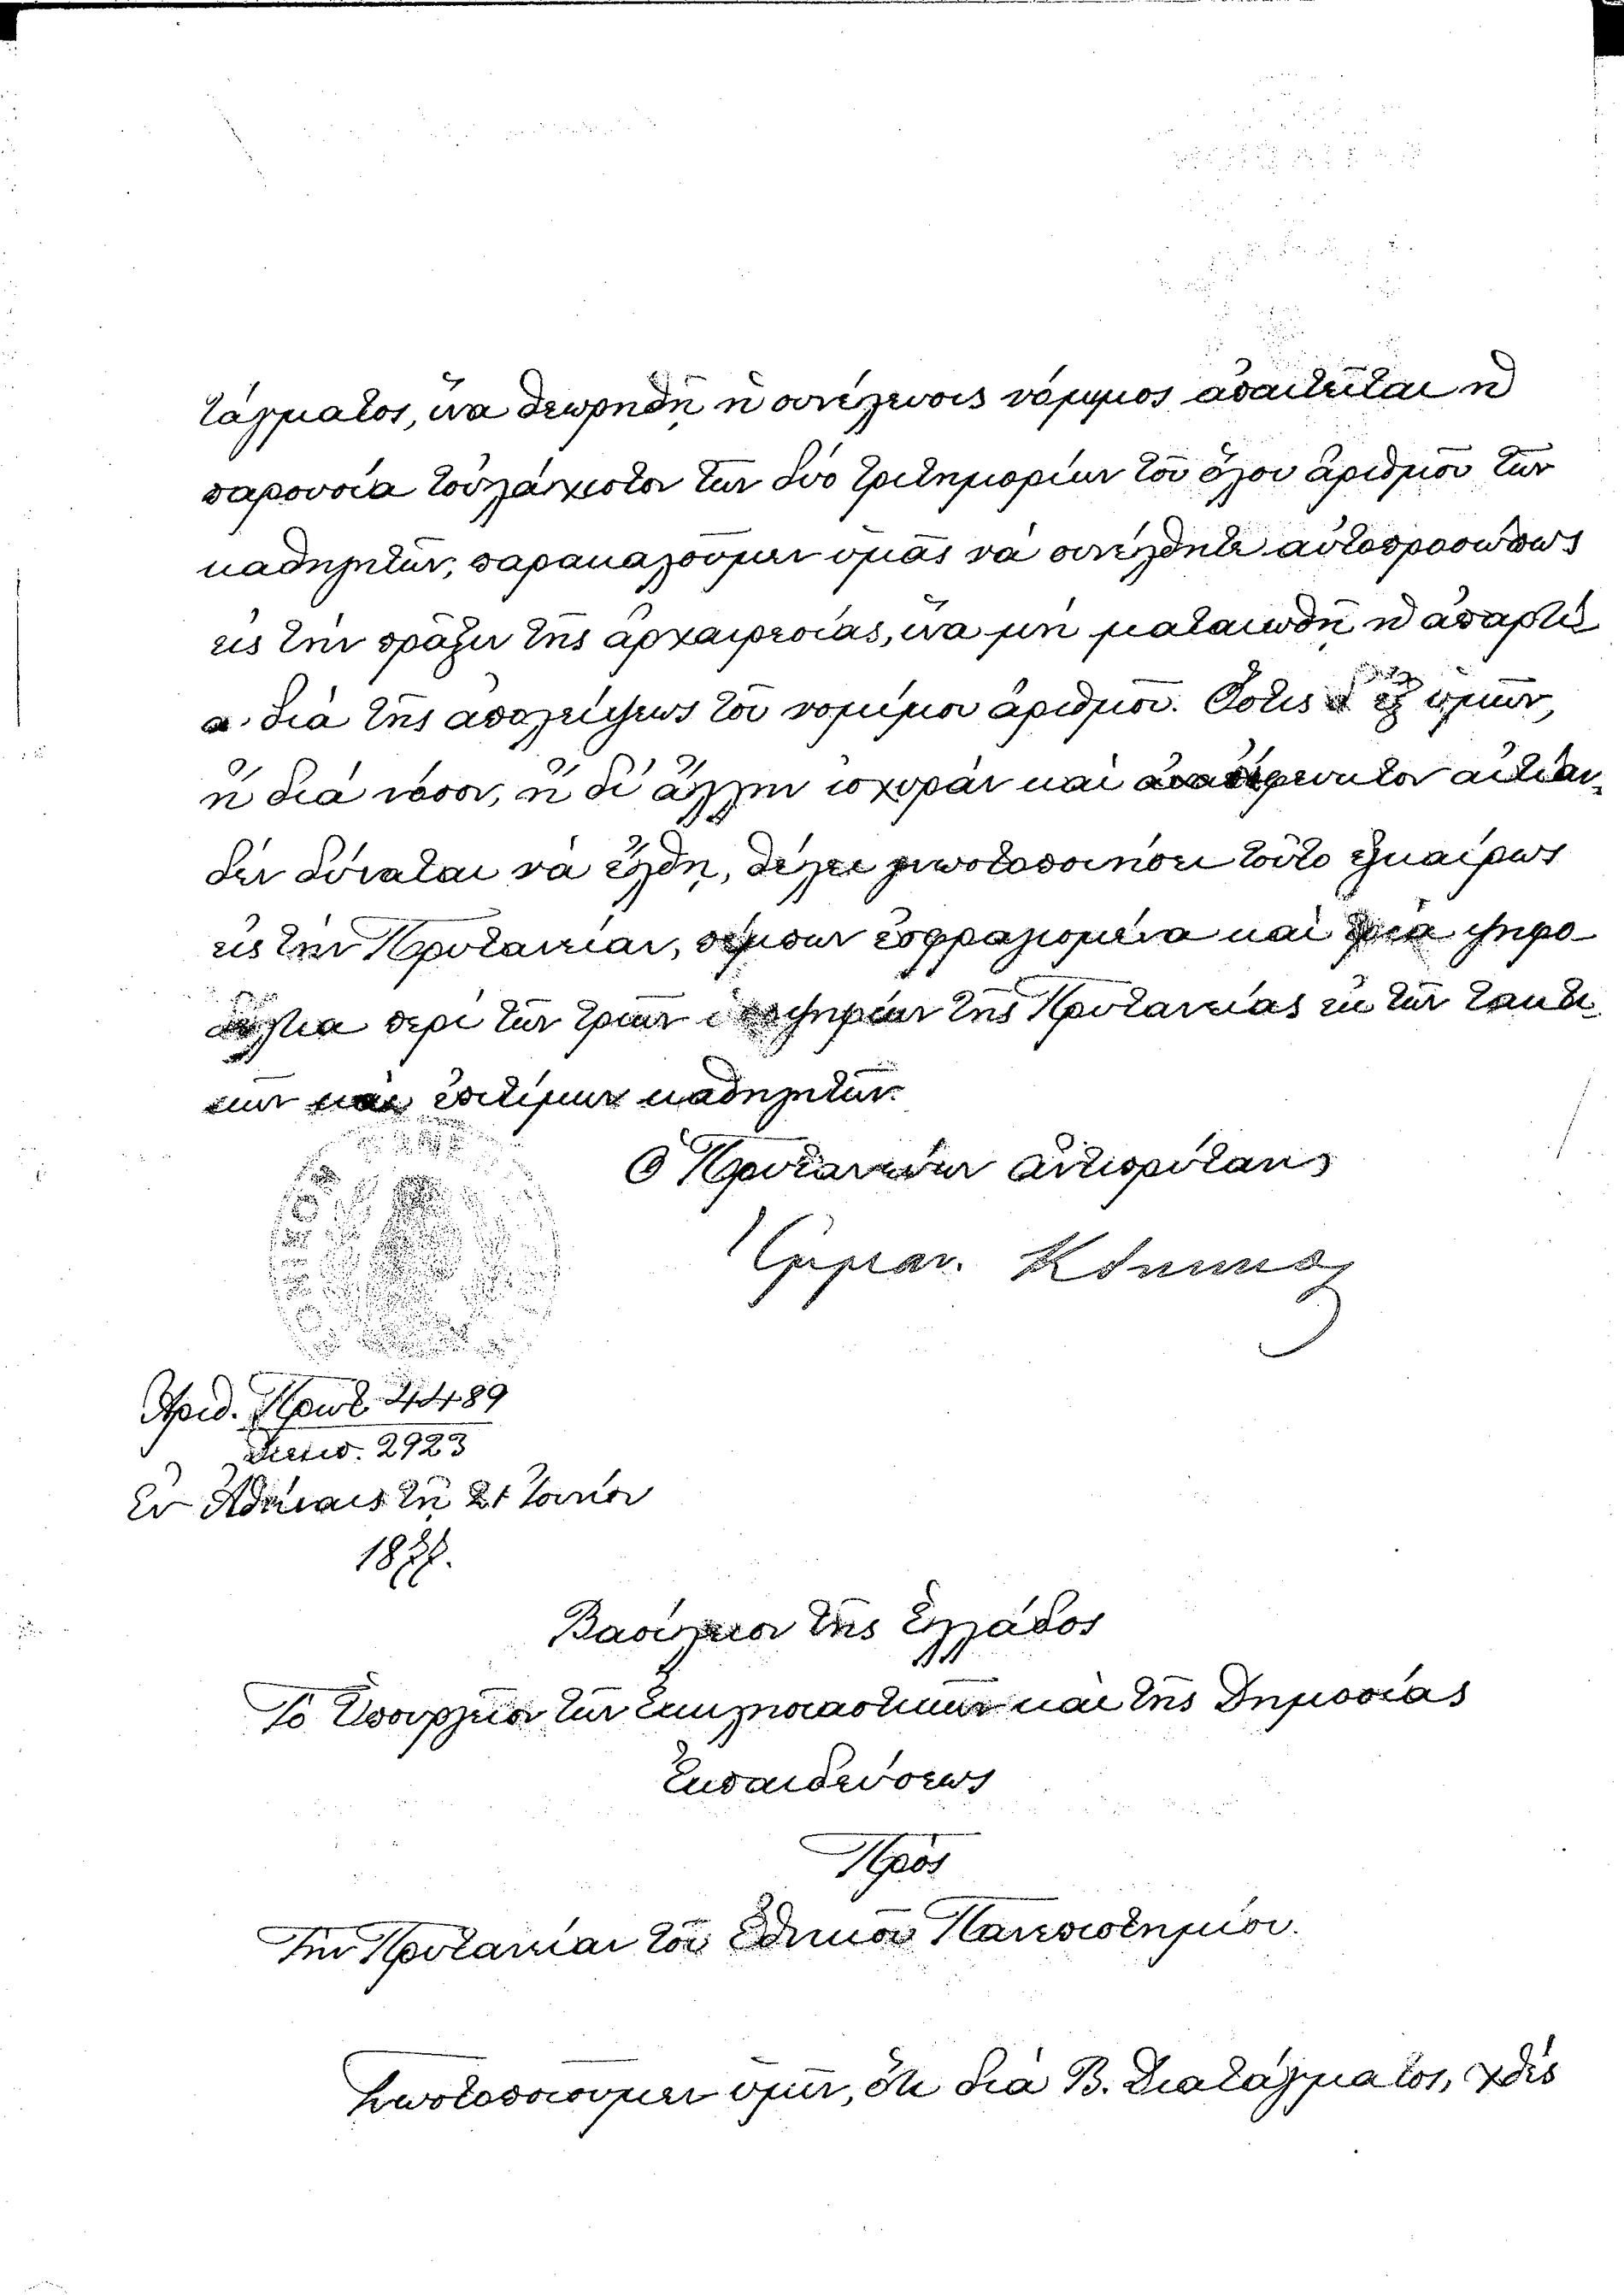 τάγματος, ἵνα θεωρηθῇ ἡ συνέλευσις νόμιμος ἀπαιτεῖται ἡ
παρουσία τοὐλάχιστον τῶν δύο τριτημορίων τοῦ ὅλου ἀριθμοῦ τῶν
καθηγητῶν, παρακαλοῦμεν ὑμᾶς νὰ συνέλθητε αὐτοπροσώπως
εἰς τὴν πρᾶξιν τῆς ἀρχαιρεσίας, ἵνα μὴ ματαιωθῇ ἡ ἀπαρτί
α διὰ τῆς ἀπολείψεως τοῦ νομίμου ἀριθμοῦ. Ὅστις ἐξ ὑμῶν,
ἢ διὰ νόσον, ἢ δι' ἄλλην ἰσχυρὰν καὶ αἰτίαν
δὲν δύναται νὰ ἔλθῃ, θέλει γνωστοποιήσει τοῦτο ἐγκαίρως
εἰς τὴν Πρυτανείαν, πέμπων ἐσφραγισμένα καὶ τρία ψηφο
δέλτια περὶ τῶν τριῶν ὑποψηφίων τῆς Πρυτανείας ἐκ τῶν τακτι
κῶν καὶ ἐπιτίμων καθηγητῶν.
Ὁ Πρυτανεύων ἀντιπρύτανις
Ἐμμαν. Κόκκινος
Ἀριθ. Πρωτ. 4489
Διεκπ. 2923
Ἐν Ἀθήναις τῇ 21 Ἰουνίου
1877.
Βασίλειον τῆς Ἑλλάδος
Τὸ Ὑπουργεῖον τῶν Ἐκκλησιαστικῶν καὶ τῆς Δημοσίας
Ἐκπαιδεύσεως
Πρὸς
Τὴν Πρυτανείαν τοῦ Ἐθνικοῦ Πανεπιστημίου.
Γνωστοποιοῦμεν ὑμῖν, ὅτι διὰ Β. Διατάγματος, χθὲς